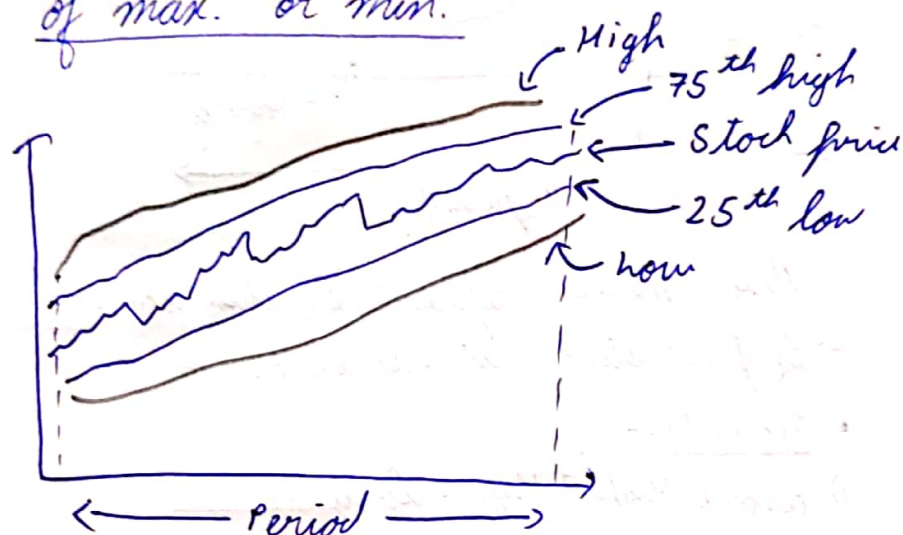 of max. or min.
High
75th high
Stock price
25th low
low
Period